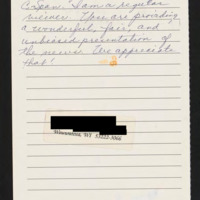 CSpan. I am a regular
viewer. You are providing
a wonderful, fair, and
unbiased presentation of
the news. We appreciate
that!
WI 53222-3866